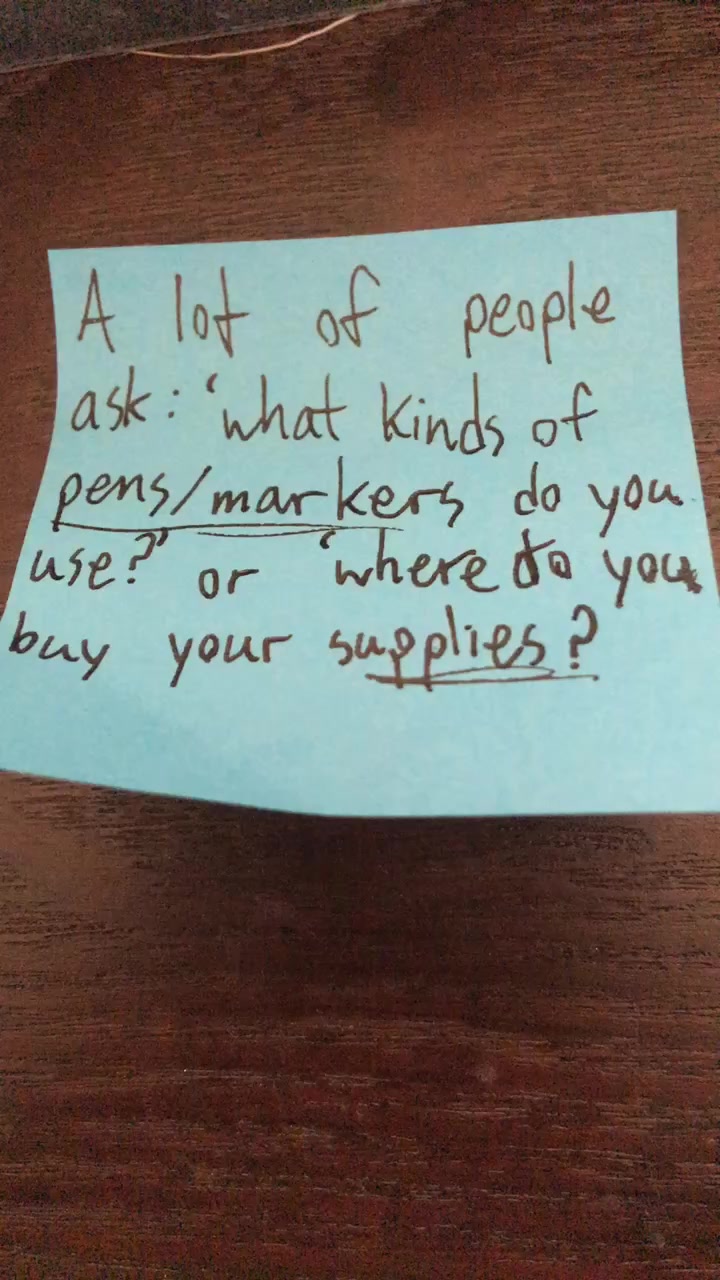 A lot of people
ask: 'what kinds of
pens/markers do you
use?' or 'where do you
buy your supplies?